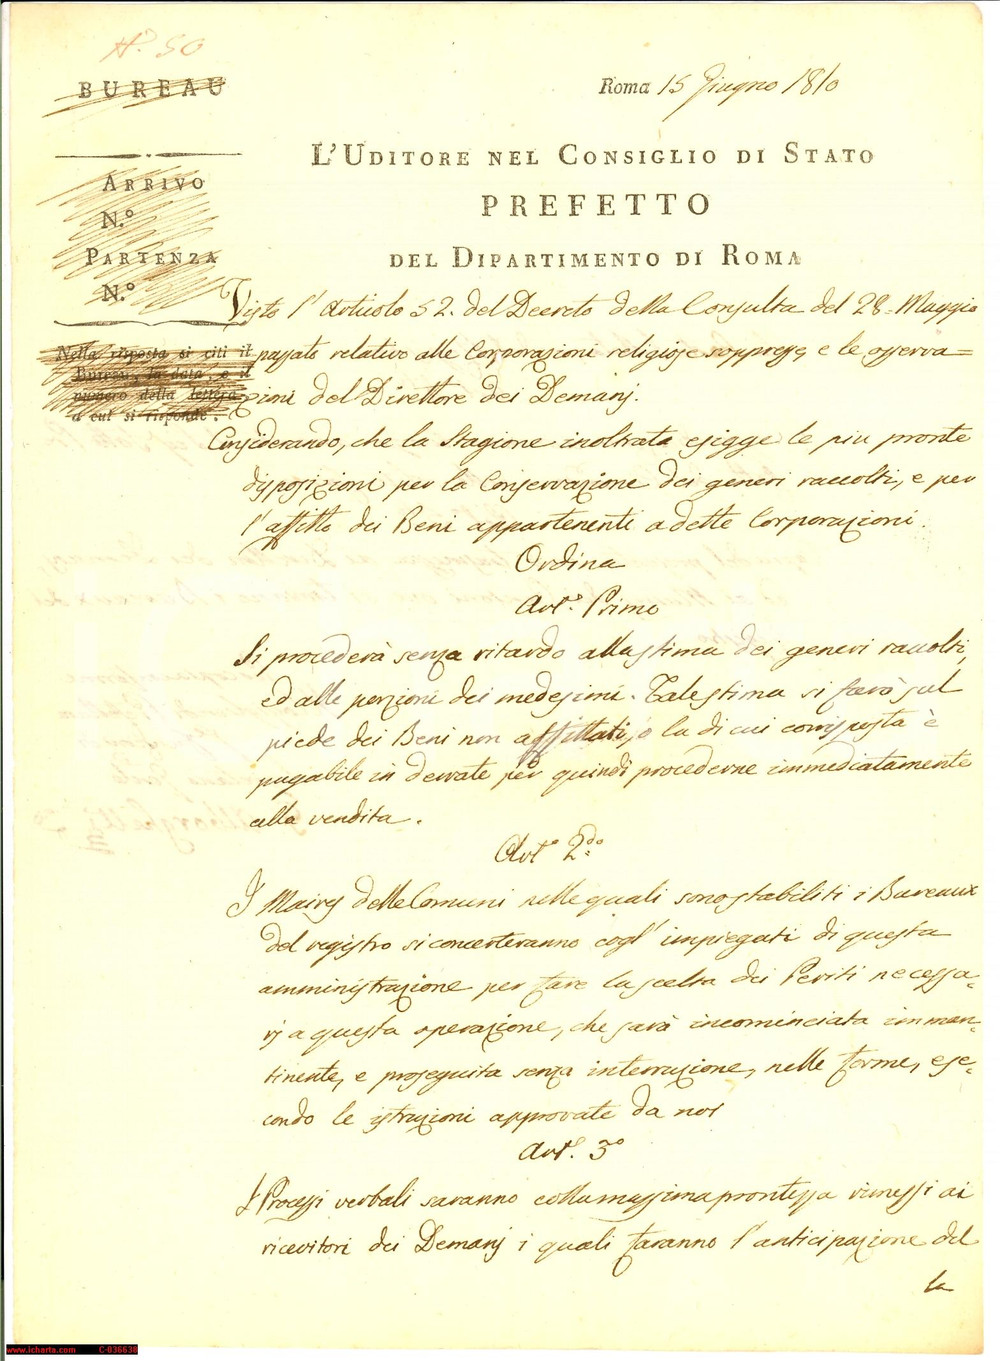 N.° 50
BUREAU
Roma 15 Giugno 1810
L'UDITORE NEL CONSIGLIO DI STATO
PREFETTO
DEL DIPARTIMENTO DI ROMA
ARRIVO
N.°
PARTENZA
N.°
Nella risposta si citi il
Bureau, la data, e il
numero della lettera
a cui si risponde.
Visto l'Articolo 52. del Decreto della Consulta del 28. Maggio
passato relativo alle Corporazioni religiose soppresse, e le osserva=
zioni del Direttore dei Demanj.
Considerando, che la Stagione inoltrata esigge le piu pronte
disposizioni per la Conservazione dei generi raccolti, e per
l'affitto dei Beni appartenenti a dette Corporazioni.
Ordina
Art.° Primo
Si procederà senza ritardo alla stima dei generi raccolti,
ed alle porzioni dei medesimi. Tale stima si farà sul
piede dei Beni non affittati, o la di cui corrisposta è
pagabile in derrate per quindi procederne immediatamente
alla vendita.
Art.° 2.do
I Maires delle Comuni nelle quali sono stabiliti i Bureaux
del registro si concerteranno cogl'impiegati di questa
amministrazione per fare la scelta dei Periti necessa-
rj a questa operazione, che sarà incominciata imman-
tinente, e proseguita senza interruzione, nelle forme, e se-
condo le istruzioni approvate da noi
Art.° 3°
I Processi verbali saranno colla massima prontezza rimessi ai
ricevitori dei Demanj i quali faranno l'anticipazione del
la
www.icharta.com C-036638